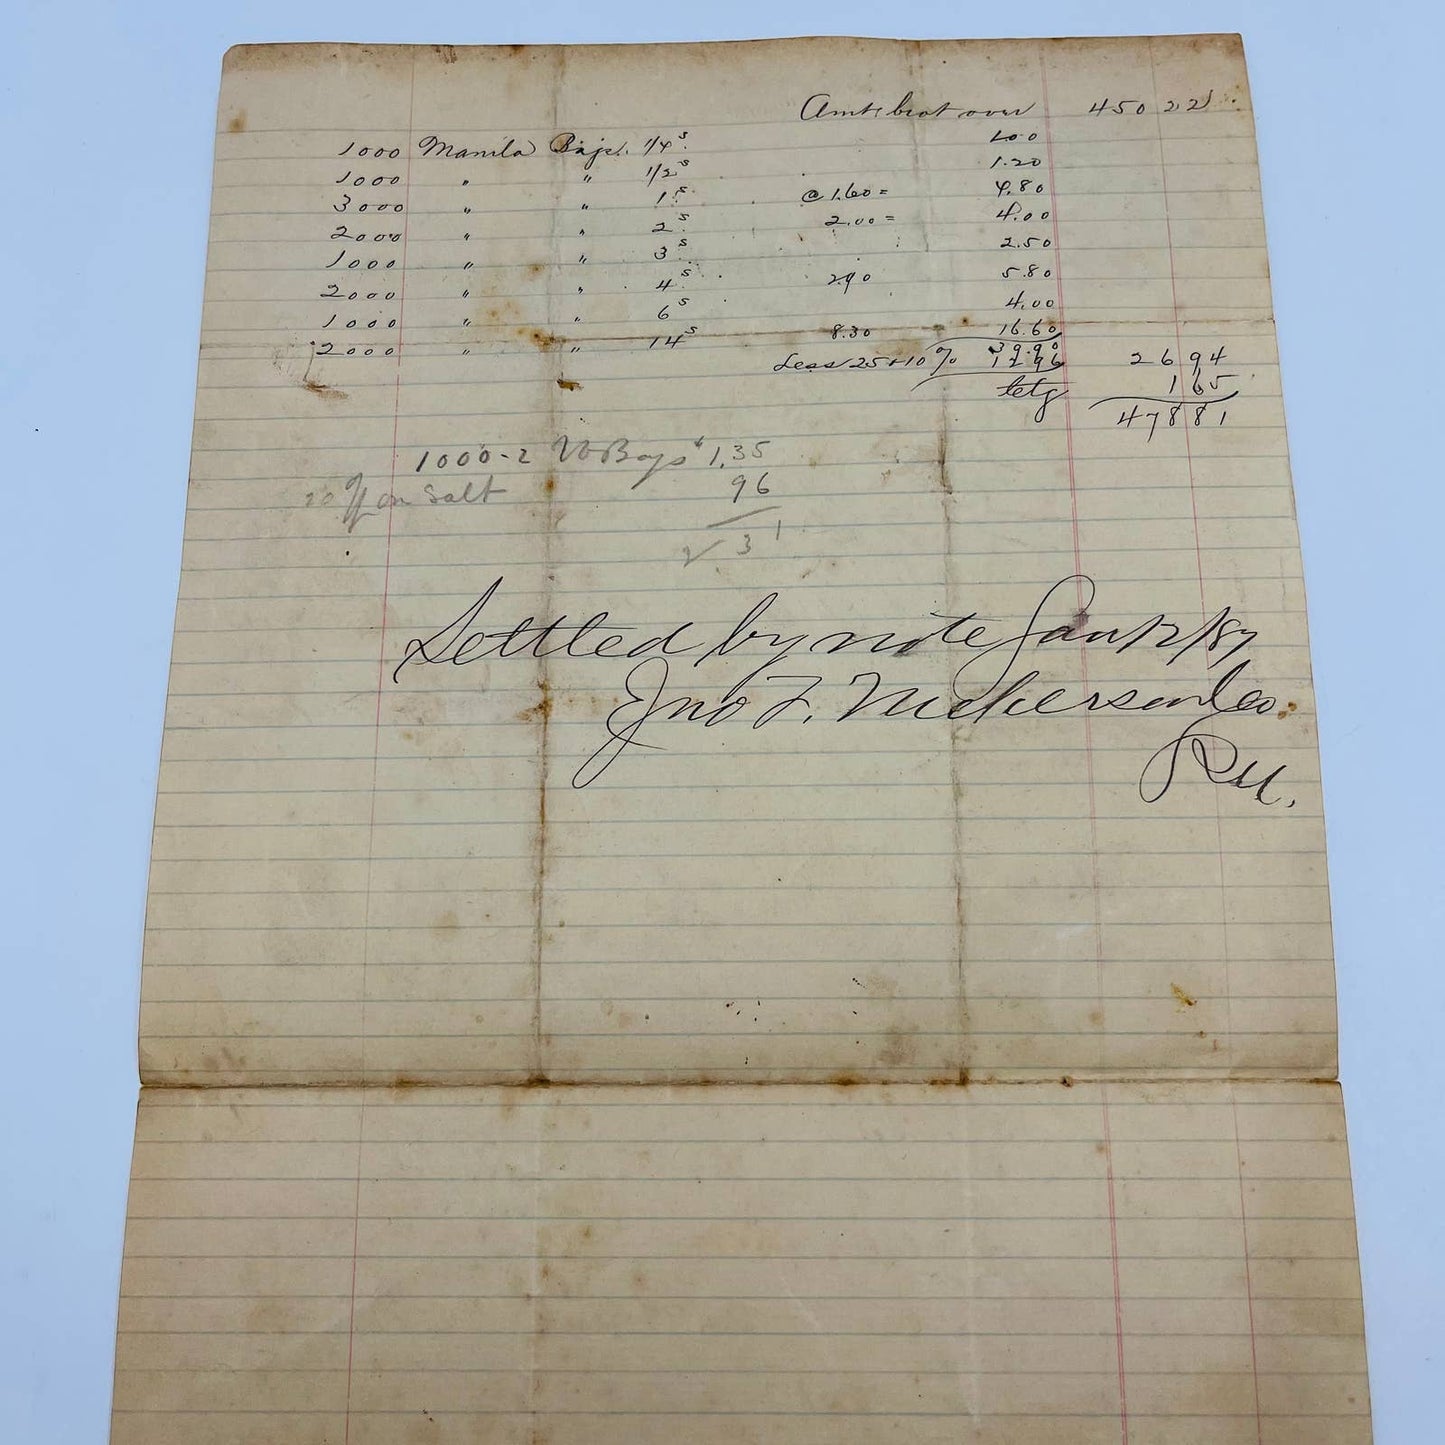 Amt brot over 450 22
1000 Manila Bags 1/4s 1.00
1000 " " 1/2s 1.20
3000 " " 1s @ 1.60 = 4.80
2000 " " 2s 2.00 = 4.00
1000 " " 3s 2.50
2000 " " 4s 2.90 5.80
1000 " " 6s 4.00
2000 " " 14s 8.30 16.60
39.90
Less 25+10% 12 96 26 94
1 65
478 81
1000-2 Bags $1.35
20 % on Salt 96
2 31
Settled by note Jan 12/87
Jno F. Nickerson & Co